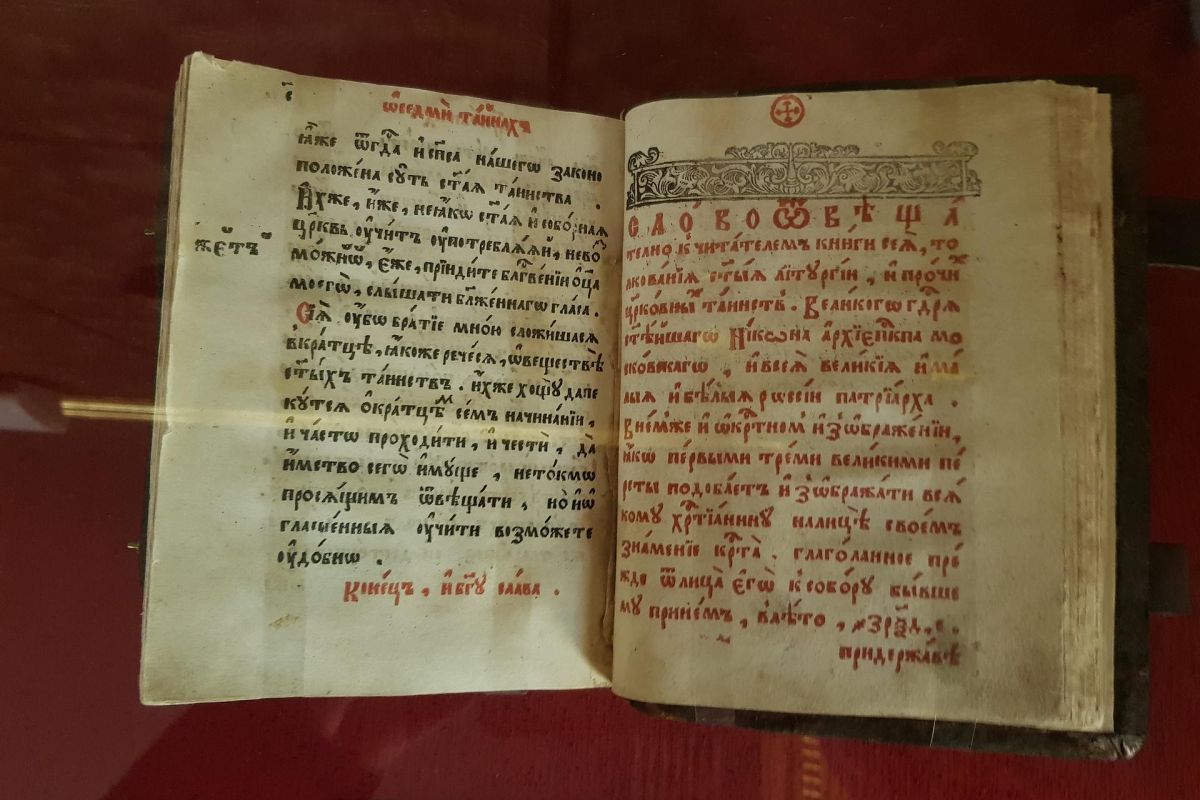 ѡ҆ седмѝ та́йнахъ
ꙗ҆̀же ѿ гдⷭ҇а и҆ сп҃са на́шегѡ законо
положе́на сꙋ́ть ст҃а́ѧ та́инства .
И҆́хже , и҆́же , не ꙗ҆́кѡ ст҃а́ѧ и҆ собо́рнаѧ
цр҃ковь ᲂу҆чи́тъ ᲂу҆потреблѧ́ѧй , невоз
мо́жнѡ , є҆́же , прїиди́те блгⷭ҇ве́нїи ѻ҆ц҃а̀
моегѡ̀ , слы́шати бл҃же́ннагѡ гла́са .
Сїѧ̑ ᲂу҆́бѡ бра́тїе мно́ю сложи́шасѧ
вкра́тцѣ , ꙗ҆́коже рече́сѧ , ѡ҆ веществѣ̀
ст҃ы́хъ та́инствъ . и҆̀хже хощꙋ̀ да пе
кꙋ́тсѧ ѡ҆ кра́тцѣмъ се́мъ начина́нїи ,
и҆ ча́стѡ проходи́ти , и҆ честѝ , да̀
и҆́мство сегѡ̀ и҆мꙋ́ще , не то́кмѡ
просѧ́щимъ ѿвѣща́ти , но̀ и҆ ѡ҆
гласье́нныѧ ᲂу҆чи́ти возмо́жете
ᲂу҆до́бнѡ .
Коне́цъ , и҆ бг҃ꙋ сла́ва .
СЛО́ВО ѾВѢЩА́
телно к̾ чита́телемъ кни́ги сеѧ̀ , то
лкова́нїѧ ст҃ы́ѧ лїтꙋргі́и , и҆ про́чихъ
цр҃ко́вныхъ та́инствъ . Вели́кагѡ гдⷭ҇рѧ
ст҃ѣ́йшагѡ Ни́кѡна а҆рхїепⷭ҇кпа мо
ско́вскагѡ , и҆ всеѧ̀ вели́кїѧ и҆ ма́
лыѧ и҆ бѣ́лыѧ рѡссі́и патрїа́рха .
В не́мже и҆ ѡ҆ крⷭ҇тномъ и҆зѡбраже́нїи ,
ꙗ҆́кѡ пе́рвыми треми́ вели́кими пе́
рсты подоба́етъ и҆зѡбража́ти всѧ́
комꙋ хрⷭ҇тїа́нинꙋ на лицѣ̀ свое́мъ
зна́менїе крⷭ҇та̀ . глаго́ланное пре́
жде ѿ лица̀ є҆гѡ̀ к̾ собо́рꙋ бы́вше
мꙋ при не́мъ , в̾ лѣ́то , ҂зр҃ѯд , е .
при держа́вѣ